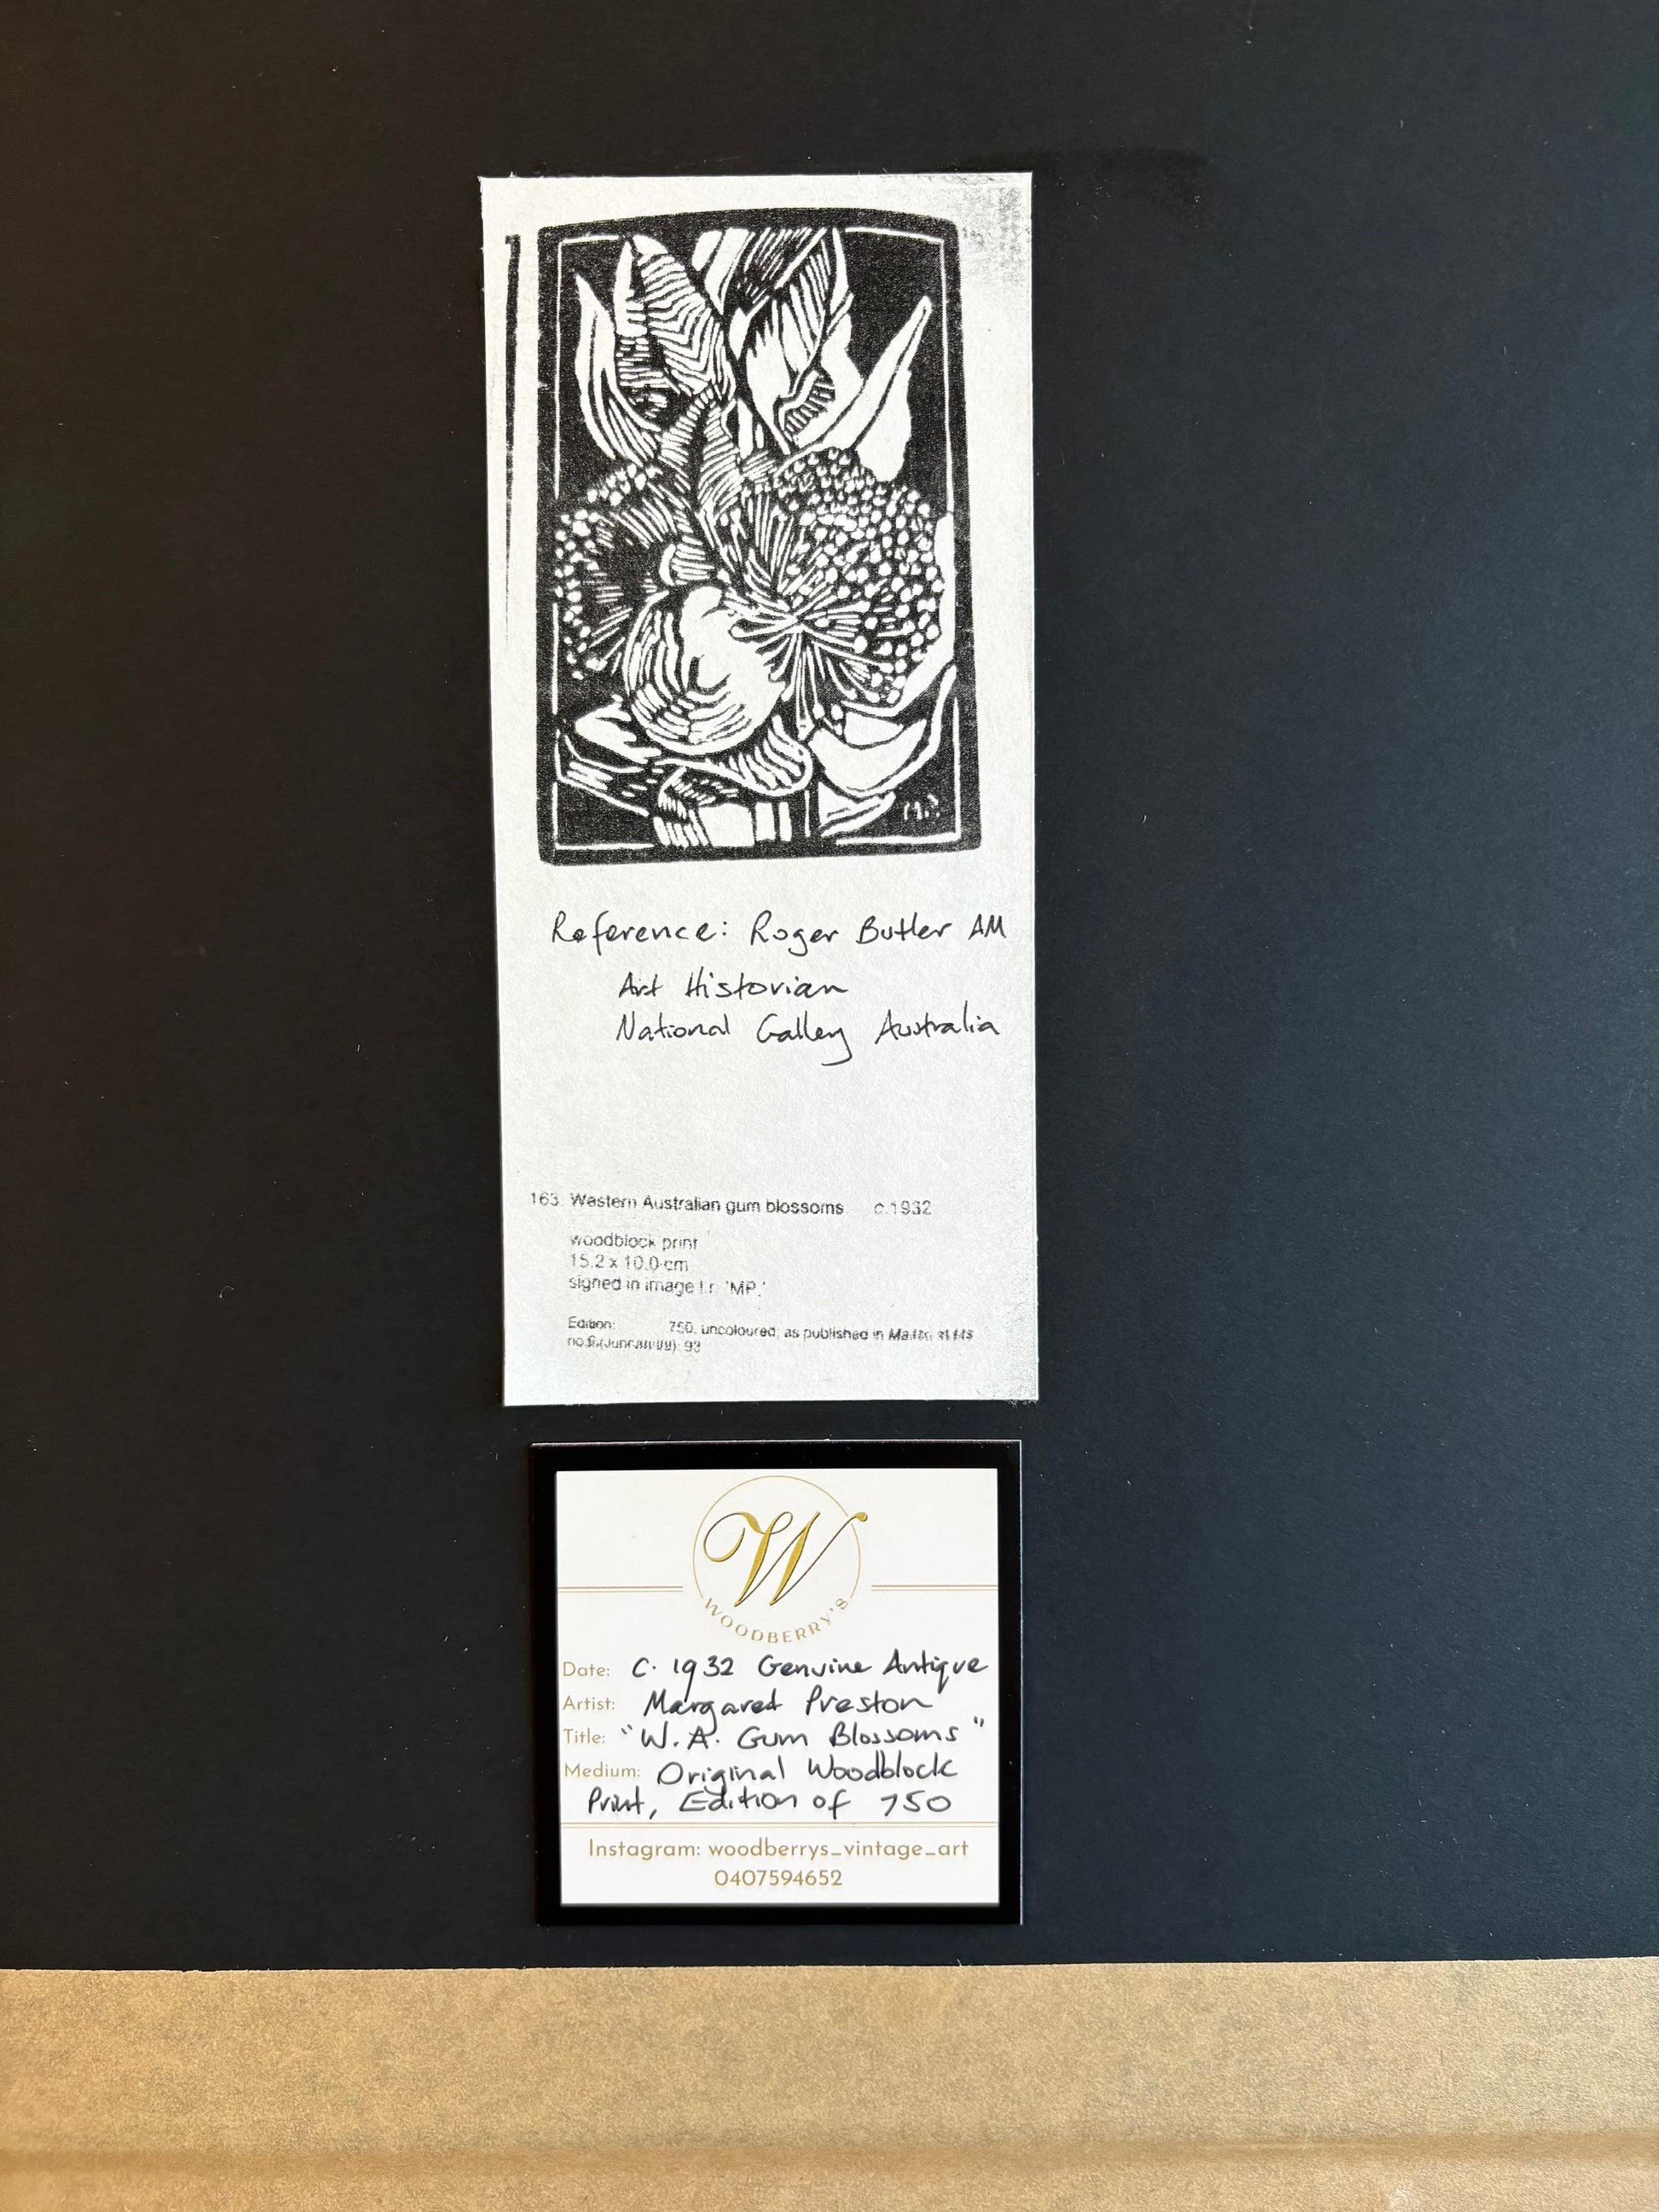 M.P.
Reference: Roger Butler AM
Art Historian
National Gallery Australia
163. Western Australian gum blossoms c.1932
woodblock print
15.2 x 10.0 cm
signed in image l.r. 'MP.'
Edition: 750, uncoloured; as published in
93
W
WOODBERRY'S
Date: C. 1932 Genuine Antique
Artist: Margaret Preston
Title: "W.A. Gum Blossoms"
Medium: Original Woodblock
Print, Edition of 750
Instagram: woodberrys_vintage_art
0407594652